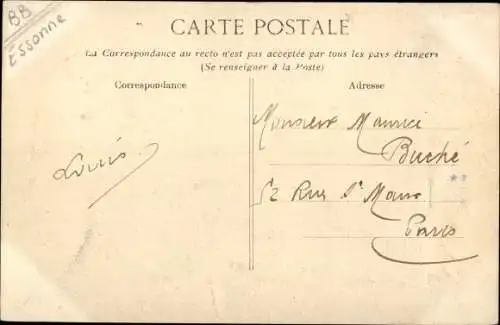 88
Essonne
CARTE POSTALE
La Correspondance au recto n'est pas acceptée par tous les pays étrangers
(Se renseigner à la Poste)
Correspondance
Adresse
Louis
Monsieur Maurice
Buché
52 Rue St Maur
Paris